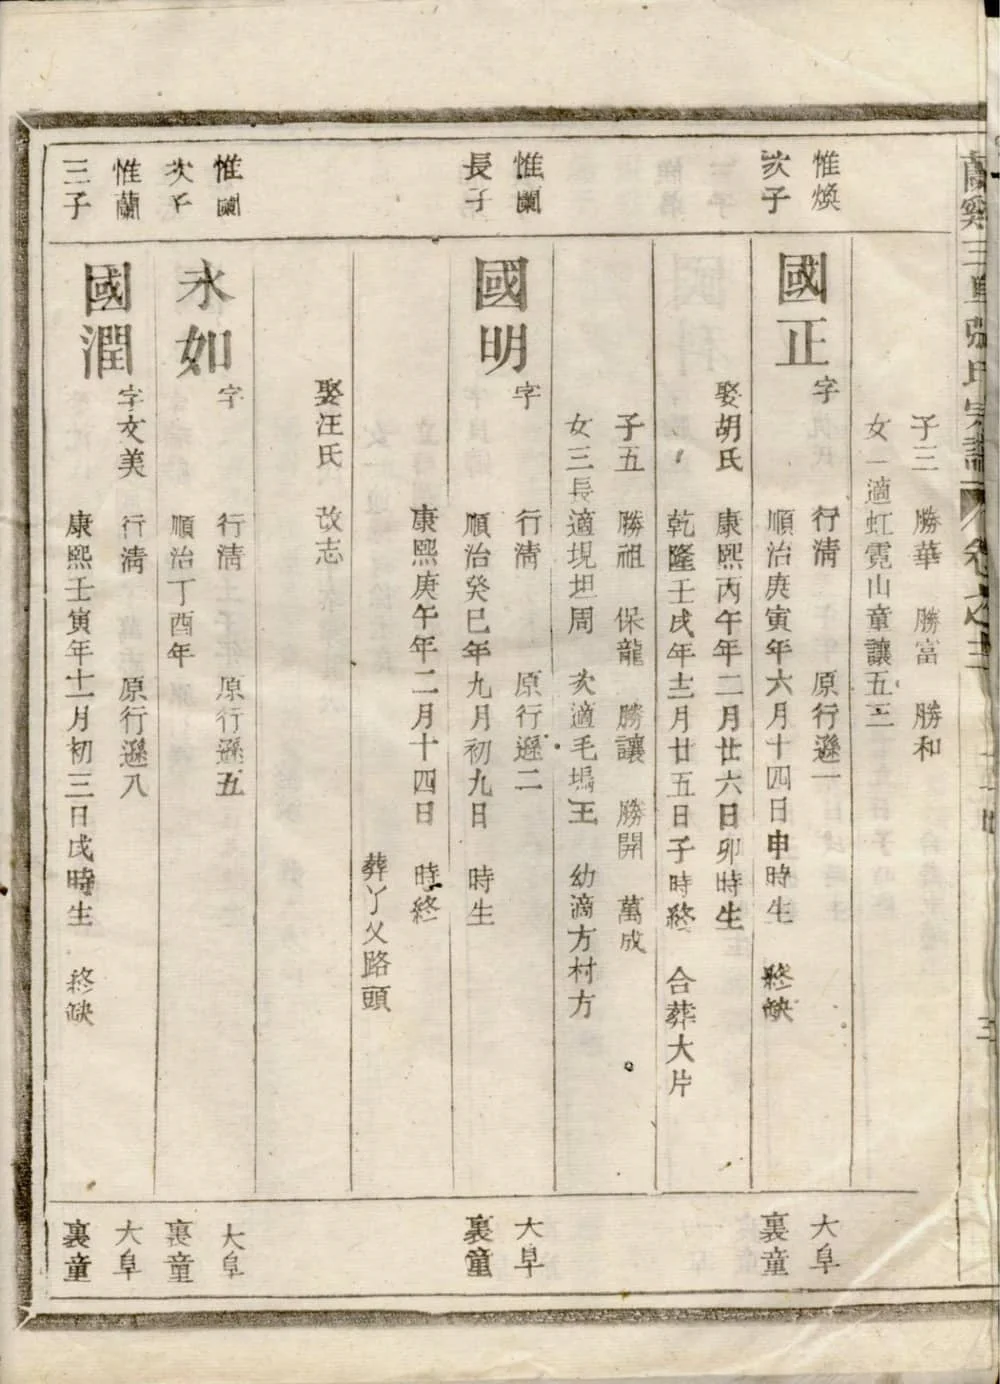 張氏宗譜
卷之三
三
子三　勝華　勝富　勝和
女一適虹霓山童讓五三
惟煥
次子
國正
字　行淸　原行遜一
順治庚寅年六月十四日申時生　終缺
娶胡氏　康熙丙午年二月廿六日卯時生
乾隆壬戌年十二月廿五日子時終　合葬大片
大阜
裏童
子五　勝祖　保龍　勝讓　勝開　萬成
女三長適垷坦周　次適毛塢王　幼滴方村方
惟蘭
長子
國明
字　行淸　原行遜二
順治癸巳年九月初九日　時生
康熙庚午年二月十四日　時終
葬丫乂路頭
娶汪氏　改志
大阜
裏童
惟蘭
次子
永如
字　行淸　原行遜五
順治丁酉年
大阜
裏童
惟蘭
三子
國潤
字文美　行淸　原行遜八
康熙壬寅年十一月初三日戌時生　終缺
大阜
裏童